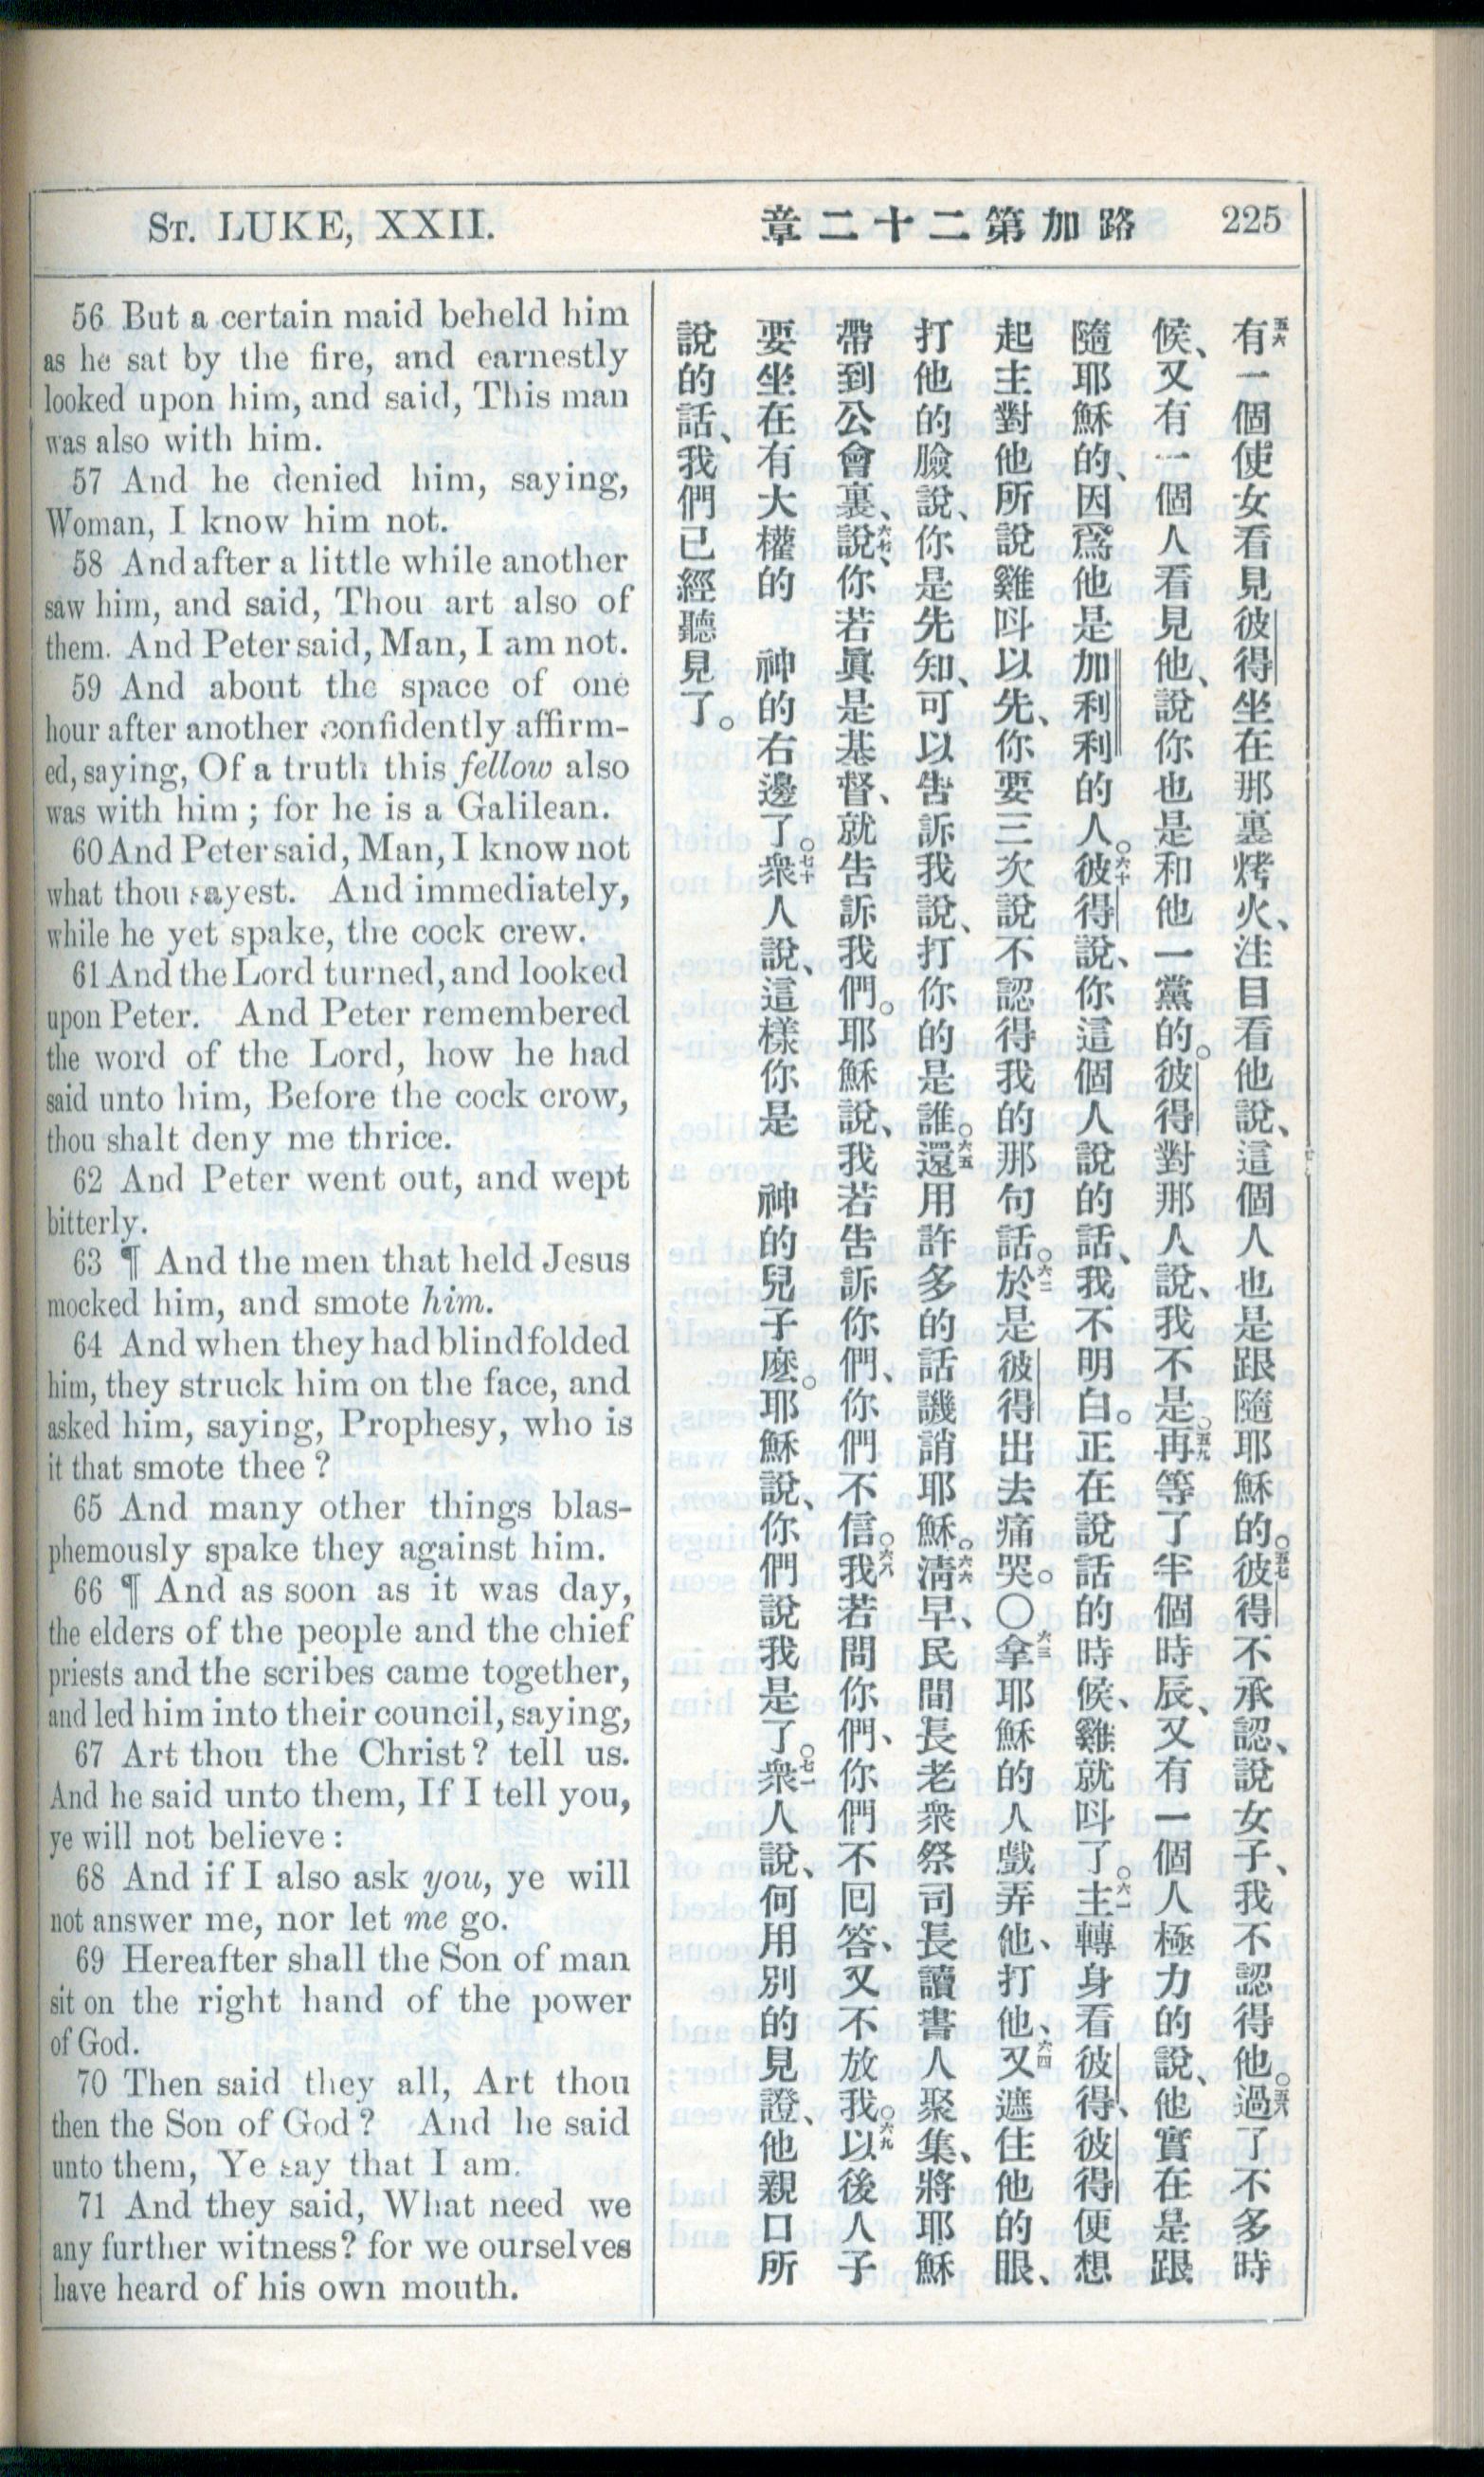 ST. LUKE, XXII.
路加第二十二章
225
56 But a certain maid beheld him
as he sat by the fire, and earnestly
looked upon him, and said, This man
was also with him.
57 And he denied him, saying,
Woman, I know him not.
58 And after a little while another
saw him, and said, Thou art also of
them. And Peter said, Man, I am not.
59 And about the space of one
hour after another confidently affirm-
ed, saying, Of a truth this fellow also
was with him; for he is a Galilean.
60 And Peter said, Man, I know not
what thou sayest. And immediately,
while he yet spake, the cock crew.
61 And the Lord turned, and looked
upon Peter. And Peter remembered
the word of the Lord, how he had
said unto him, Before the cock crow,
thou shalt deny me thrice.
62 And Peter went out, and wept
bitterly.
63 ¶ And the men that held Jesus
mocked him, and smote him.
64 And when they had blindfolded
him, they struck him on the face, and
asked him, saying, Prophesy, who is
it that smote thee?
65 And many other things blas-
phemously spake they against him.
66 ¶ And as soon as it was day,
the elders of the people and the chief
priests and the scribes came together,
and led him into their council, saying,
67 Art thou the Christ? tell us.
And he said unto them, If I tell you,
ye will not believe:
68 And if I also ask you, ye will
not answer me, nor let me go.
69 Hereafter shall the Son of man
sit on the right hand of the power
of God.
70 Then said they all, Art thou
then the Son of God? And he said
unto them, Ye say that I am.
71 And they said, What need we
any further witness? for we ourselves
have heard of his own mouth.
五六有一個使女看見彼得坐在那裏烤火、注目看他說、這個人也是跟隨耶穌的。五七彼得不承認、說女子、我不認得他。五八過了不多時
候、又有一個人看見他、說你也是和他一黨的。彼得對那人說、我不是。五九再等了半個時辰、又有一個人極力的說、他實在是跟
隨耶穌的、因爲他是加利利的人。六十彼得說、你這個人說的話、我不明白。正在說話的時候、雞就呌了。六一主轉身看彼得、彼得便想
起主對他所說雞呌以先、你要三次說不認得我的那句話。六二於是彼得出去痛哭。〇六三拿耶穌的人戲弄他、打他、六四又遮住他的眼、
打他的臉說、你是先知、可以告訴我說、打你的是誰。六五還用許多的話譏誚耶穌。六六淸早、民間長老衆祭司長讀書人聚集、將耶穌
帶到公會裏、六七說、你若眞是基督、就告訴我們。耶穌說、我若告訴你們、你們不信。六八我若問你們、你們不囘答、又不放我。六九以後人子
要坐在有大權的 神的右邊了。七十衆人說、這樣你是 神的兒子麽。耶穌說、你們說我是了。七一衆人說、何用別的見證、他親口所
說的話、我們已經聽見了。